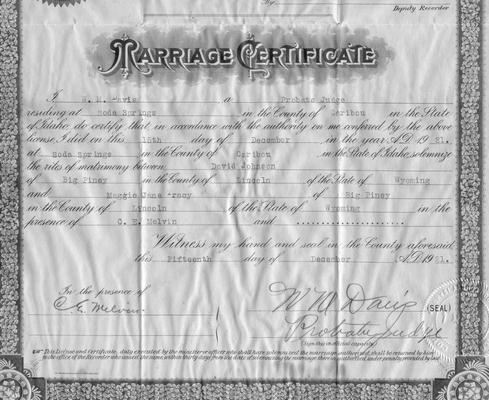 By
Deputy Recorder
MARRIAGE CERTIFICATE
I W. M. Davis a Probate Judge
residing at Soda Springs in the County of Caribou in the State
of Idaho, do certify that in accordance with the authority on me conferred by the above
license, I did on this 15th day of December in the year A.D. 1921.
at Soda Springs in the County of Caribou in the State of Idaho, solemnize
the rites of matrimony between David Johnson
of Big Piney in the County of Lincoln of the State of Wyoming
and Maggie Jane of Big Piney
in the County of Lincoln of the State of Wyoming in the
presence of C. E. Melvin and
Witness my hand and seal in the County aforesaid
this Fifteenth day of December A.D. 1921.
In the presence of
C. E. Melvin. W M Davis (SEAL)
Probate Judge
(Sign this official capacity)
This License and Certificate, duly executed by the minister or officer who shall have solemnized the marriage authorized, shall be returned by him
to the office of the Recorder who issued the same, within thirty days from the date of solemnizing the marriage therein authorized under penalty provided by law.